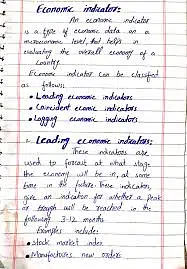 Economic indicators:
An economic indicator
is a type of economic data on a
microeconomic level, that helps in
evaluating the overall economy of a
country.
Economic indicator can be classified
as follows:
• Leading economic indicators
• Coincident economic indicators
• Lagging economic indicators
1. Leading economic indicators:
These indicators are
used to forcast at what stage
the economy will be in, at some
time in the future. These indicators
give an indication for whether a peak
or trough will be reached in the
following 3-12 months
Examples include:
• Stock market index
• Manufactures' new orders